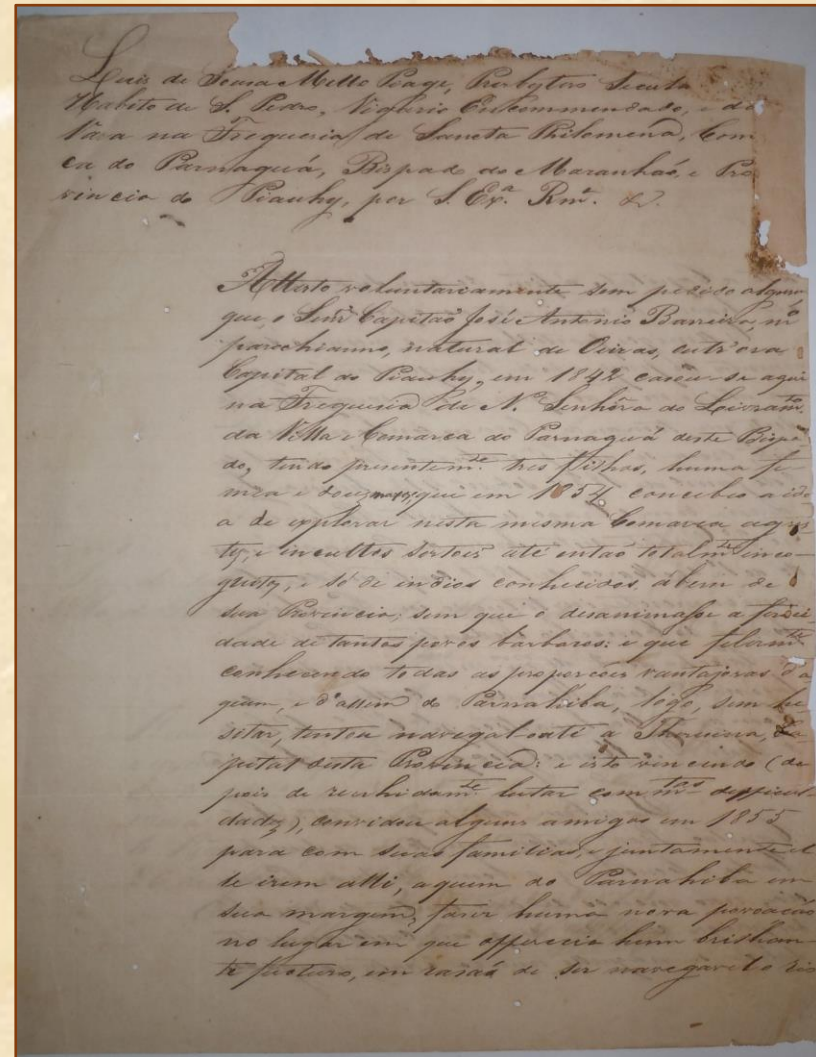 Luis de Sousa Mello Page, Presbytero Secula
Habito de S. Pedro, Vigario Encommendado, e da
Vara na Freguesia de Sancta Philomena, Com
ca do Parnaguá, Bispado do Maranhaõ, e Pro
vincia do Piauhy, por S. Exª. Rmª. &.
Attesto voluntariamente sem pedido algum
que, o Senr Capitaõ José Antonio Barreira, mº
parochianno, natural de Oeiras, outr'ora
Capital do Piauhy, em 1842 casou-se aqui
na Freguesia de Nª. Senhôra do Livramto.
da Villa e Comarca do Parnaguá deste Bispa-
do, tendo presentemte. tres filhos, huma fe-
mea e dous que em 1854 concebeo a idé
a de explorar nesta mesma Comarca agres-
tes, e incultos Sertoes até entaõ totalmte. inco-
gnitos, e só de indios conhecidos, abem de
sua Provincia; sem que o desanimasse a feroci-
dade de tantos povos bárbaros: e que
conhecendo todas as proporcões vantajosas d'a
quem, e d'allem do Parnahiba, lôgo, sem he-
sitar, tentou navegal-o até a Theresina, Ca-
pital desta Provincia: e isto vincendo (de
pois de lutar com mtas difficul-
dades), convidou alguns amigos em 1855
para com suas familias, e juntamente el
le irem alli, aquem do Parnahiba em
sua margem, faser huma nova povoacaõ
no lugar em que offerecia hum brilhan-
te futuro, em rasaõ de ser navegavel o rio